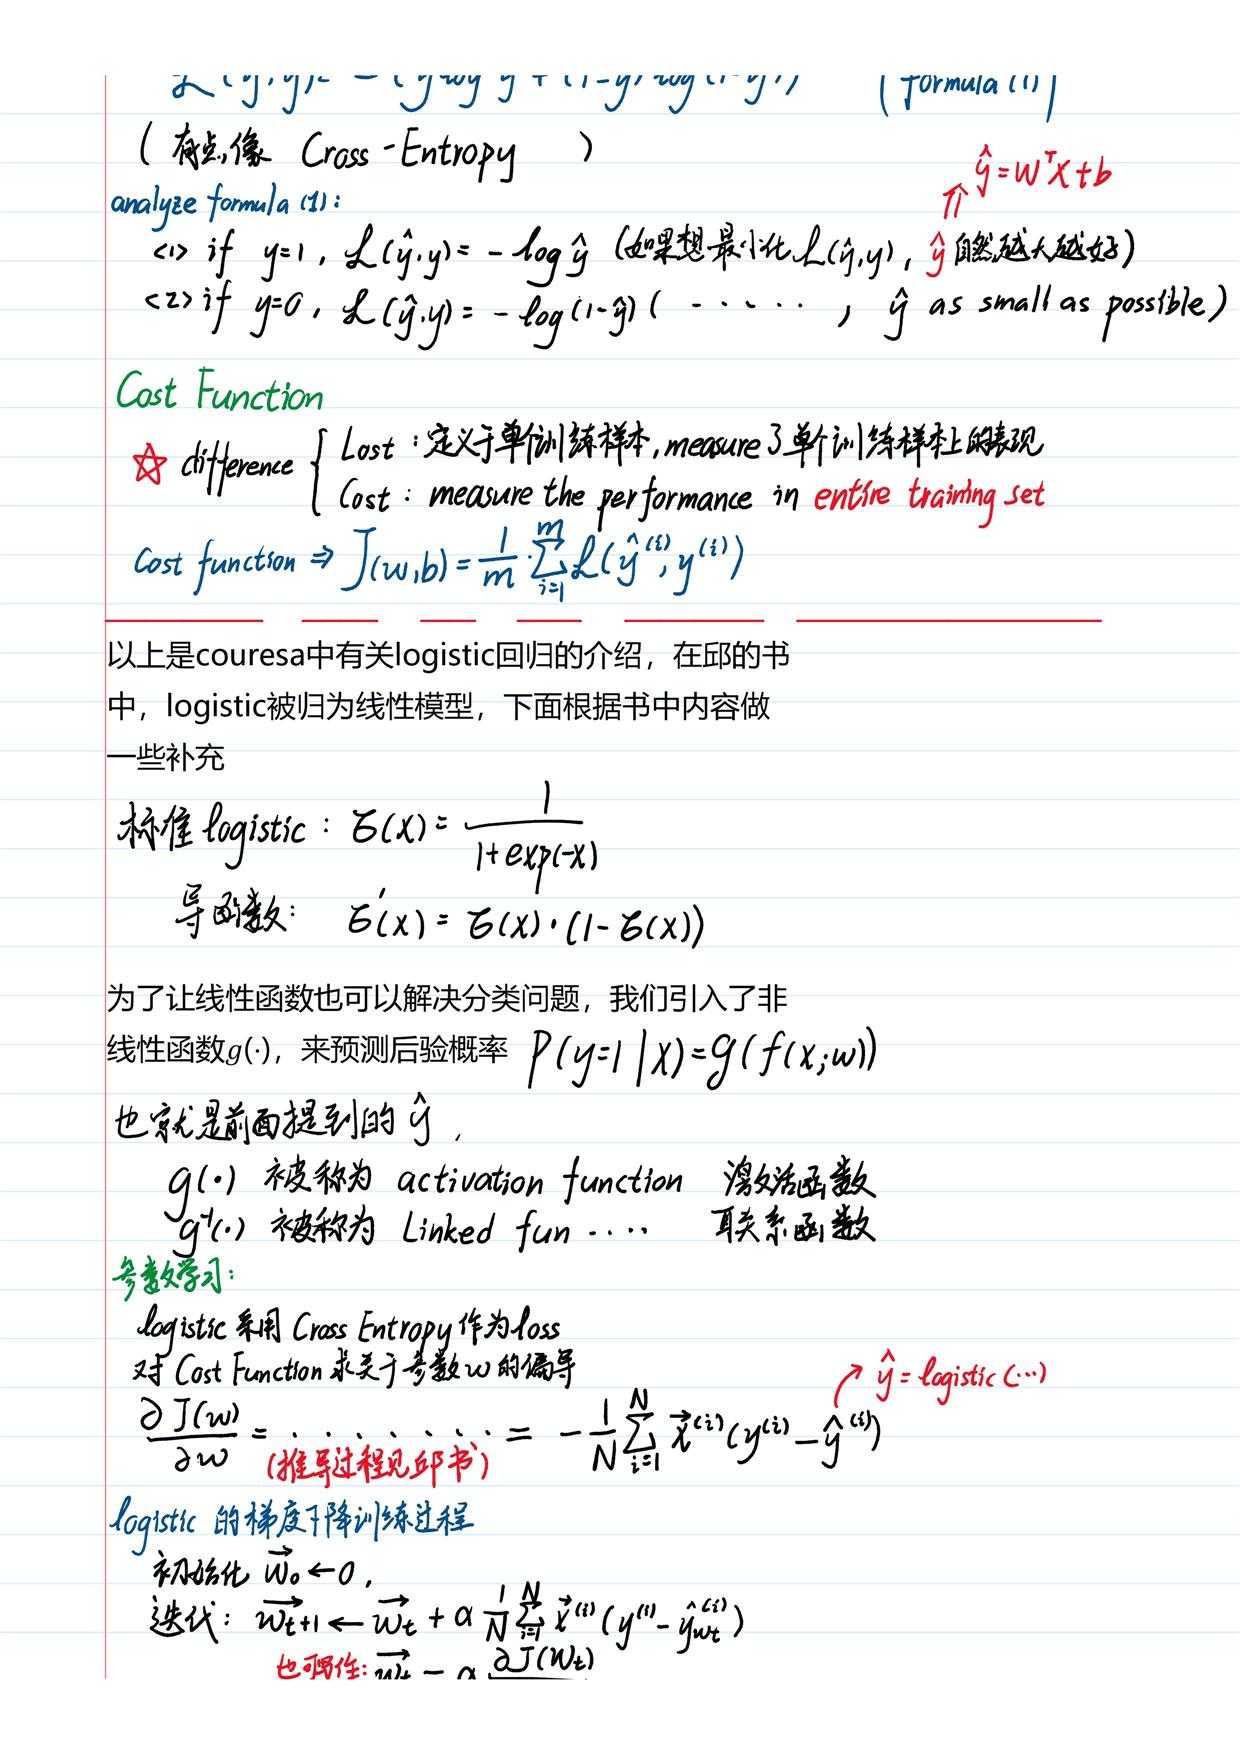 L(ŷ,y) = -(y log ŷ + (1-y) log(1-ŷ)) (formula (1))
(有点像 Cross-Entropy )
ŷ=wᵀx+b
analyze formula (1):
<1> if y=1, L(ŷ,y)= -log ŷ (如果想最小化L(ŷ,y), ŷ自然越大越好)
<2> if y=0, L(ŷ,y)= -log(1-ŷ) ( ······, ŷ as small as possible)
Cost Function
☆ difference { Lost:定义于单个训练样本,measure了单个训练样本上的表现
Cost: measure the performance in entire training set
Cost function ⇒ J(w,b) = 1/m · ∑_{i=1}^{m} L(ŷ⁽ⁱ⁾, y⁽ⁱ⁾)
以上是couresa中有关logistic回归的介绍，在邱的书
中，logistic被归为线性模型，下面根据书中内容做
一些补充
标准logistic: σ(x) = 1/(1+exp(-x))
导函数: σ'(x) = σ(x)·(1-σ(x))
为了让线性函数也可以解决分类问题，我们引入了非
线性函数g(·)，来预测后验概率 P(y=1|x)=g(f(x;w))
也就是前面提到的 ŷ,
g(·) 被称为 activation function 激活函数
g⁻¹(·) 被称为 Linked fun ···· 联系函数
参数学习:
logistic采用 Cross Entropy 作为loss
对 Cost Function 求关于参数w的偏导
ŷ = logistic(···)
∂J(w)/∂w = ········ = -1/N ∑_{i=1}^{N} x⃗⁽ⁱ⁾(y⁽ⁱ⁾-ŷ⁽ⁱ⁾)
(推导过程见邱书)
logistic 的梯度下降训练过程
初始化 w⃗₀←0,
迭代: w⃗_{t+1} ← w⃗_t + α 1/N ∑_{i=1}^{N} x⃗⁽ⁱ⁾(y⁽ⁱ⁾-ŷ_{wt}⁽ⁱ⁾)
也可写作: w⃗_t - α ∂J(W_t)